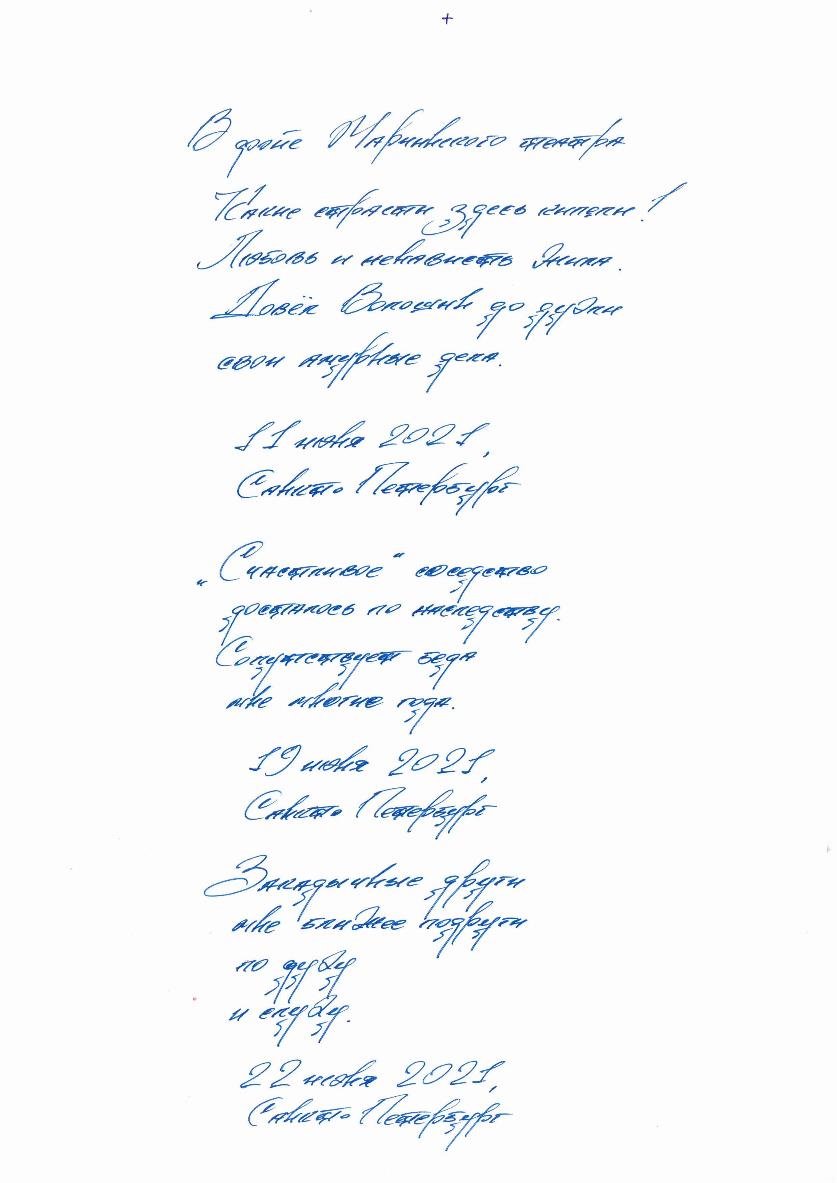 +
В фойе Мариинского театра
Какие страсти здесь кипели!
Любовь и ненависть жила.
Довёл Волошин до дуэли
свои амурные дела.
11 июня 2021,
Санкт-Петербург
„Счастливое“ соседство
досталось по наследству.
Сопутствует беда
мне многие года.
19 июня 2021,
Санкт-Петербург
Закадычные други
мне ближе подруги
по духу
и слуху.
22 июня 2021,
Санкт-Петербург